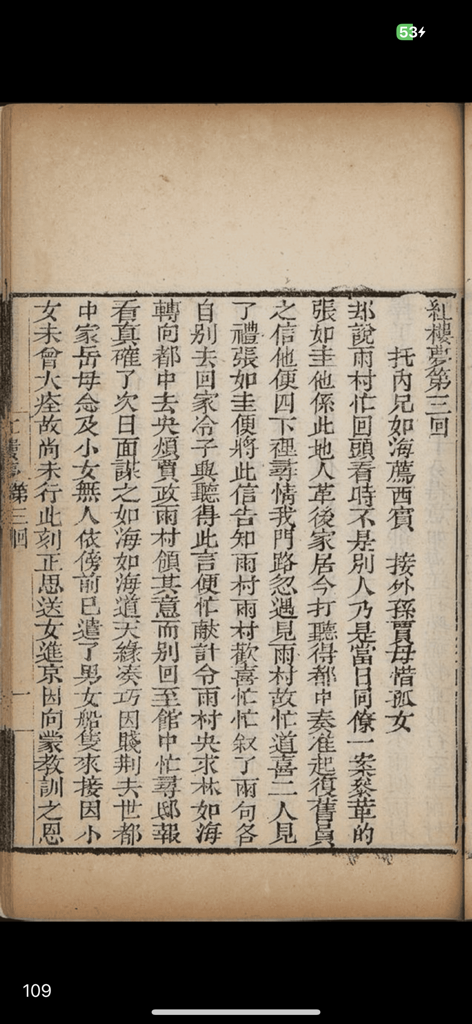 53
紅樓夢第三回
托內兄如海薦西賓 接外孫賈母惜孤女
却說雨村忙回頭看時不是別人乃是當日同僚一案叅革的
張如圭他係此地人革後家居今打聽得都中奏准起復舊員
之信他便四下裡尋情我門路忽遇見雨村故忙道喜二人見
了禮張如圭便將此信告知雨村雨村歡喜忙忙叙了兩句各
自別去回家冷子興聽得此言便忙献計令雨村央求林如海
轉向都中去央煩賈政雨村領其意而別回至館中忙尋邸報
看真確了次日面謀之如海如海道天緣凑巧因賤荆去世都
中家岳母念及小女無人依傍前已遣了男女船隻來接因小
女未曾大痊故尚未行此刻正思送女進京因向蒙教訓之恩
第三回 一
109